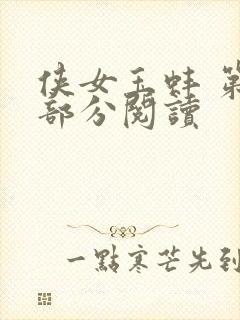 侠女玉蚌 第
部分閱讀
一點寒芒先到